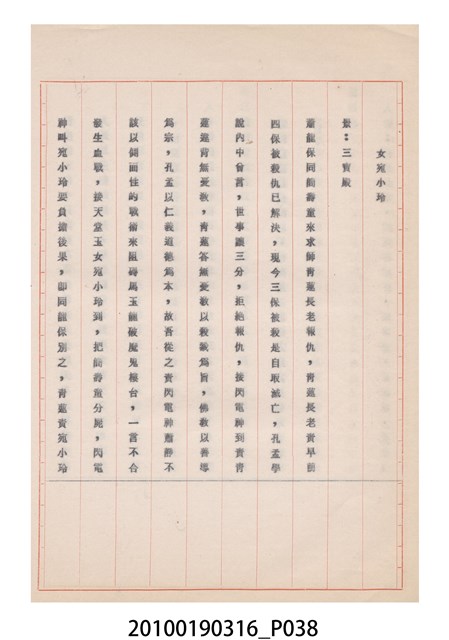 女宛小玲
景：三寶殿
蕭龍保同簡壽童來求師青蓮長老報仇，青蓮長老責早前
四保被殺仇已解決，現今三保被殺是自取滅亡，孔孟學
說內中曾言，世事讓三分，拒絕報仇，接閃電神到責青
蓮違背無憂教，青蓮答無憂教以殺誅為旨，佛教以善導
為宗，孔孟以仁義道德為本，故吾從之責閃電神蕭靜不
該以側面性的戰術來阻碍馬玉龍破魔鬼樓台，一言不合
發生血戰，接天堂玉女宛小玲到，把簡壽童分屍，閃電
神叫宛小玲要負擔後果，即同龍保別之，青蓮責宛小玲
20100190316_P038